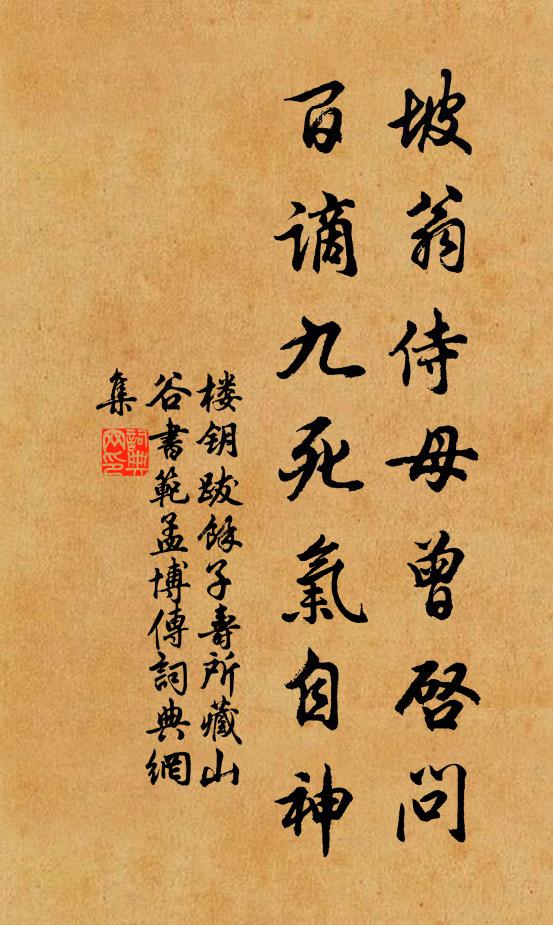 坡翁侍母曾启問
百謫九死氣自神
楼钥跋餘子壽所藏山
谷書範孟博傳詞典網
集
詞典
网印